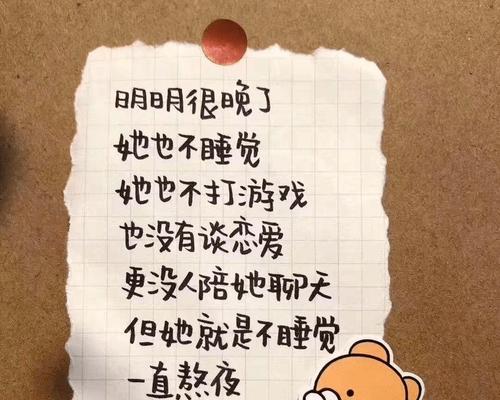 明明很晚了
她也不睡觉
她也不打游戏
也没有谈恋爱
更没人陪她聊天
但她就是不睡觉
一直熬夜